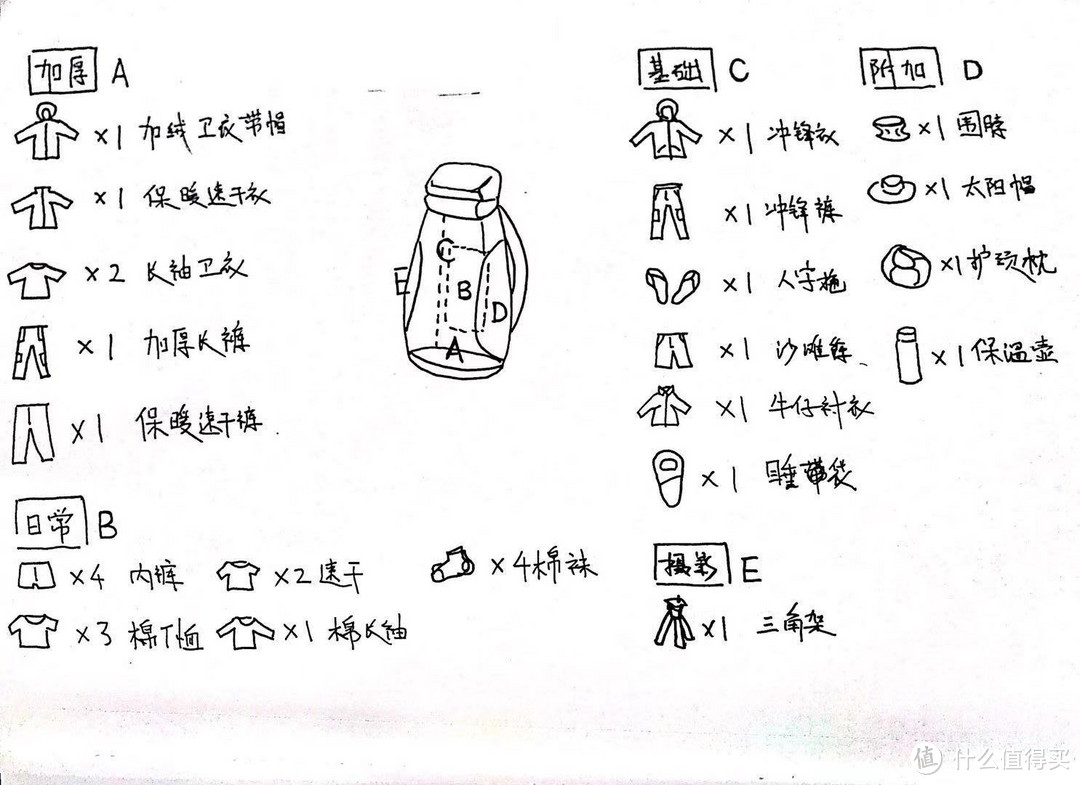 加厚 A
×1 加绒卫衣带帽
×1 保暖速干衣
×2 长袖卫衣
×1 加厚长裤
×1 保暖速干裤
日常 B
×4 内裤
×2 速干
×4 棉袜
×3 棉T恤
×1 棉长袖
C
E
B
D
A
基础 C
×1 冲锋衣
×1 冲锋裤
×1 人字拖
×1 沙滩裤
×1 牛仔衬衣
×1 睡袋
摄影 E
×1 三角架
附加 D
×1 围脖
×1 太阳帽
×1 护颈枕
×1 保温壶
值 什么值得买